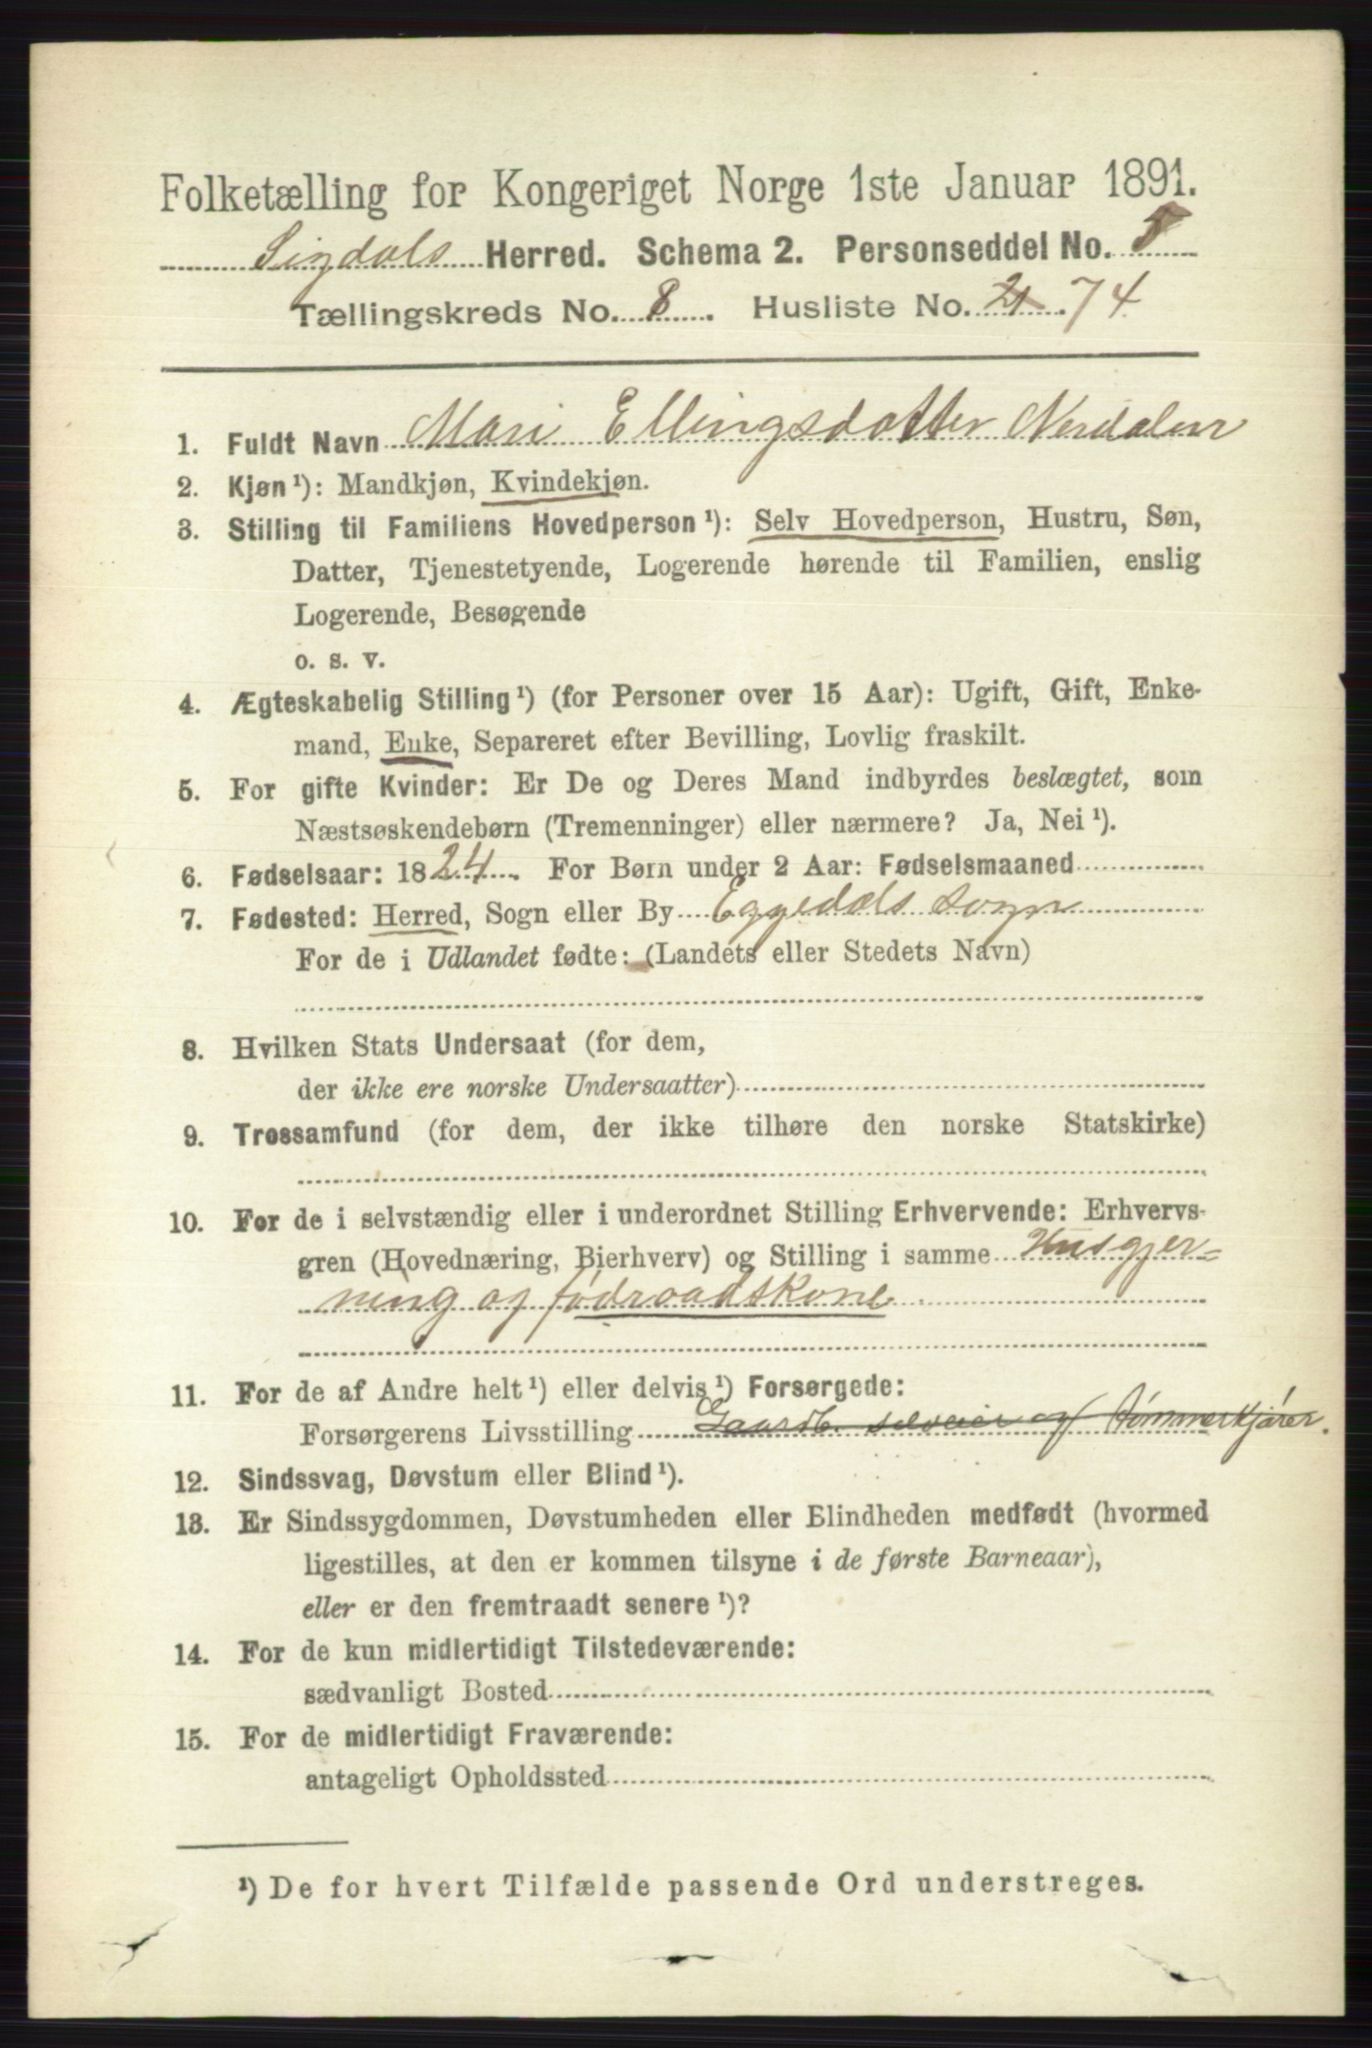 Folketælling for Kongeriget Norge 1ste Januar 1891.
Sigdals Herred. Schema 2. Personseddel No.
Tællingskreds No. 8. Husliste No. 21. 74
1. Fuldt Navn Mari Ellingsdatter Nerdalen
2. Kjøn¹): Mandkjøn, Kvindekjøn.
3. Stilling til Familiens Hovedperson¹): Selv Hovedperson, Hustru, Søn,
Datter, Tjenestetyende, Logerende hørende til Familien, enslig
Logerende, Besøgende
o. s. v.
4. Ægteskabelig Stilling¹) (for Personer over 15 Aar): Ugift, Gift, Enke-
mand, Enke, Separeret efter Bevilling, Lovlig fraskilt.
5. For gifte Kvinder: Er De og Deres Mand indbyrdes beslægtet, som
Næstsøskendebørn (Tremenninger) eller nærmere? Ja, Nei¹).
6. Fødselsaar: 1824. For Børn under 2 Aar: Fødselsmaaned
7. Fødested: Herred, Sogn eller By Eggedals Sogn
For de i Udlandet fødte: (Landets eller Stedets Navn)
8. Hvilken Stats Undersaat (for dem,
der ikke ere norske Undersaatter)
9. Trossamfund (for dem, der ikke tilhøre den norske Statskirke)
10. For de i selvstændig eller i underordnet Stilling Erhvervende: Erhvervs-
gren (Hovednæring, Bierhverv) og Stilling i samme Husgjer=
ning og födraadskone
11. For de af Andre helt¹) eller delvis¹) Forsørgede:
Forsørgerens Livsstilling Gaardb. selveier og tömmerkjörer.
12. Sindssvag, Døvstum eller Blind¹).
13. Er Sindssygdommen, Døvstumheden eller Blindheden medfødt (hvormed
ligestilles, at den er kommen tilsyne i de første Barneaar),
eller er den fremtraadt senere¹)?
14. For de kun midlertidigt Tilstedeværende:
sædvanligt Bosted
15. For de midlertidigt Fraværende:
antageligt Opholdssted
¹) De for hvert Tilfælde passende Ord understreges.